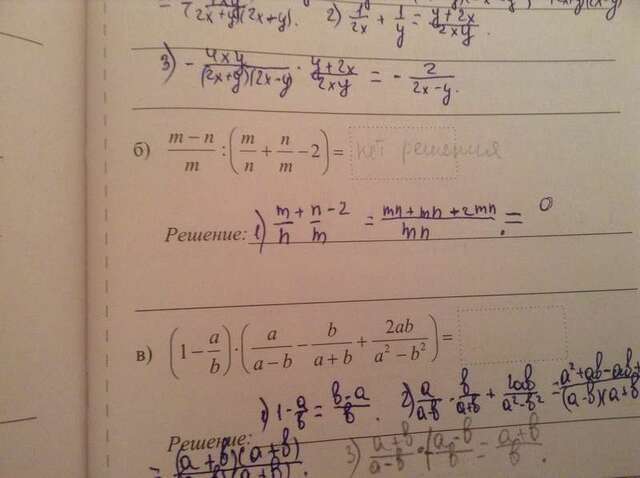 = 7 (2x+y)(2x+y). 2) 1/2x + 1/y = y+2x/2xy.
3) - 4xy/(2x+y)(2x-y) · y+2x/2xy = - 2/2x-y.
б) m − n/m : (m/n + n/m − 2) = нет решения
Решение: 1) m/n + n/m - 2 = mn+mn+2mn/mn. = 0
в) (1 − a/b) · (a/a − b − b/a + b + 2ab/a² − b²) =
1) 1 - a/b = b-a/b. 2) a/a-b - b/a+b + 2ab/a²-b² = a²+ab-ab+/(a-b)(a+b
Решение:
= (a+b)(a+b) 3) a+b/a-b · (a-b/b = a+b/b.